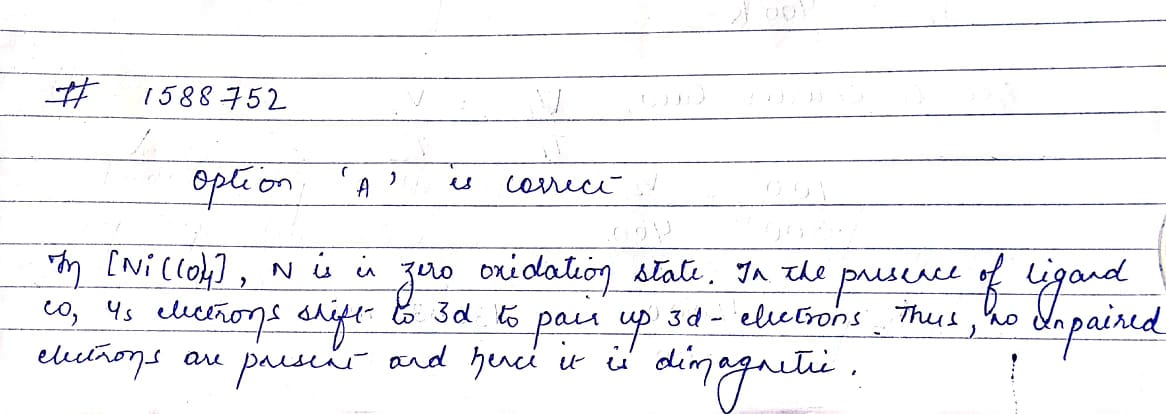 # 1588752
option 'A' is correct
In [Ni(CO)4], N is in zero oxidation state. In the presence of ligand
co, 4s electrons shift to 3d to pair up 3d - electrons. Thus, no unpaired
electrons are present and hence it is dimagnetic.